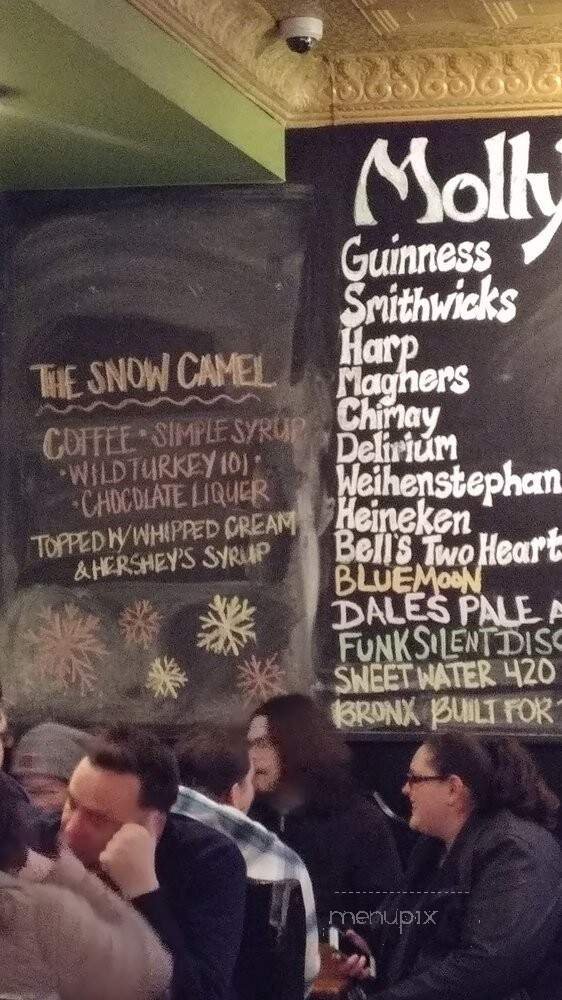 THE SNOW CAMEL
COFFEE · SIMPLE SYRUP
· WILD TURKEY 101 ·
· CHOCOLATE LIQUER
TOPPED W/ WHIPPED CREAM
& HERSHEY'S SYRUP
Molly'
Guinness
Smithwicks
Harp
Magners
Chimay
Delirium
Weihenstephan
Heineken
Bell's Two Heart
BLUE MOON
DALES PALE A
FUNK SILENT DISC
SWEET WATER 420
BRONX BUILT FOR
menupix